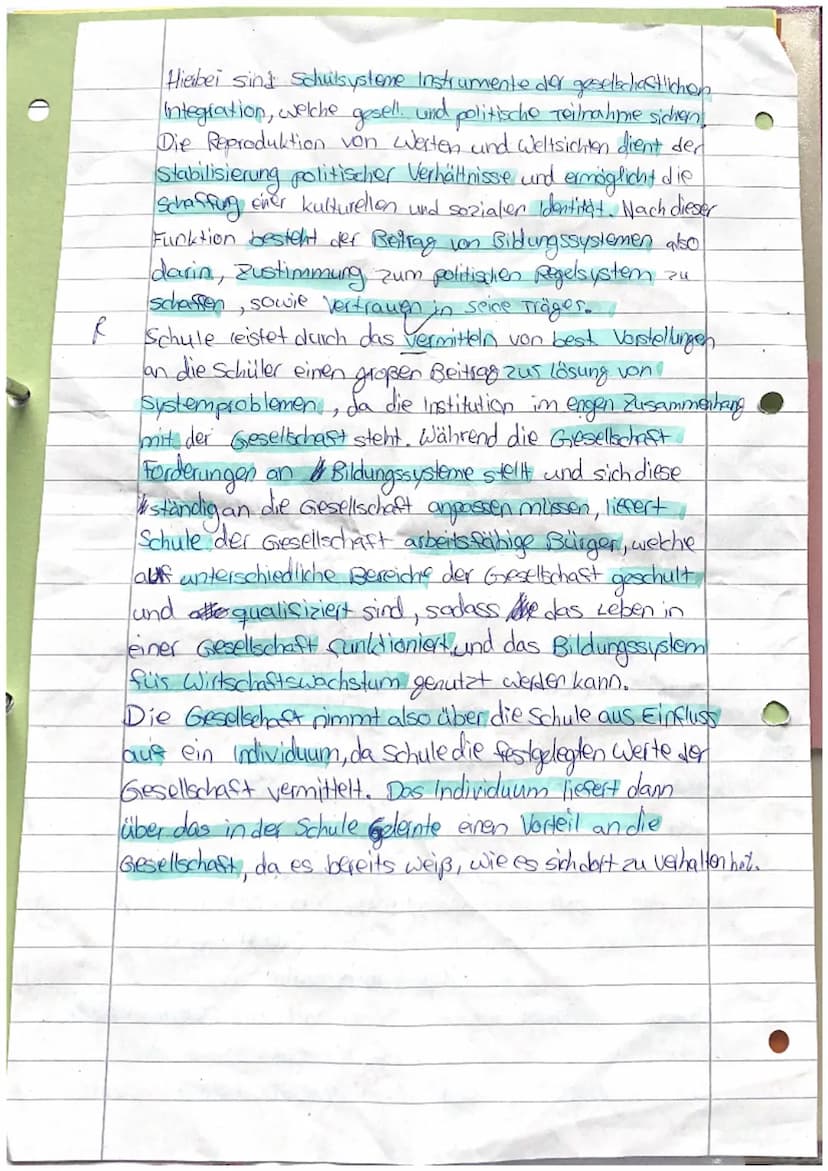 Hierbei sind Schulsysteme Instrumente der gesellschaftlichen
Integration, welche gesell. und politische Teilnahme sichern.
Die Reproduktion von Werten und Weltsichten dient der
Stabilisierung politischer Verhältnisse und ermöglicht die
Schaffung einer kulturellen und sozialen Identität. Nach dieser
Funktion besteht der Beitrag von Bildungssystemen also
darin, Zustimmung zum politischen Regelsystem zu
schaffen, sowie Vertrauen in seine Träger.
R Schule leistet durch das vermitteln von best. Vorstellungen
an die Schüler einen großen Beitrag zur lösung von
Systemproblemen, da die Institution im engen Zusammenhang
mit der Gesellschaft steht. Während die Gesellschaft
Forderungen an Bildungssysteme stellt und sich diese
ständig an die Gesellschaft anpassen müssen, liefert
Schule der Gesellschaft arbeitsfähige Bürger, welche
auf unterschiedliche Bereiche der Gesellschaft geschult
und qualifiziert sind, sodass das Leben in
einer Gesellschaft funktioniert und das Bildungssystem
für Wirtschaftswachstum genutzt werden kann.
Die Gesellschaft nimmt also über die Schule aus Einfluss
auf ein Individuum, da Schule die festgelegten Werte der
Gesellschaft vermittelt. Das Individuum liefert dann
über das in der Schule gelernte einen Vorteil an die
Gesellschaft, da es bereits weiß, wie es sich dort zu verhalten hat.